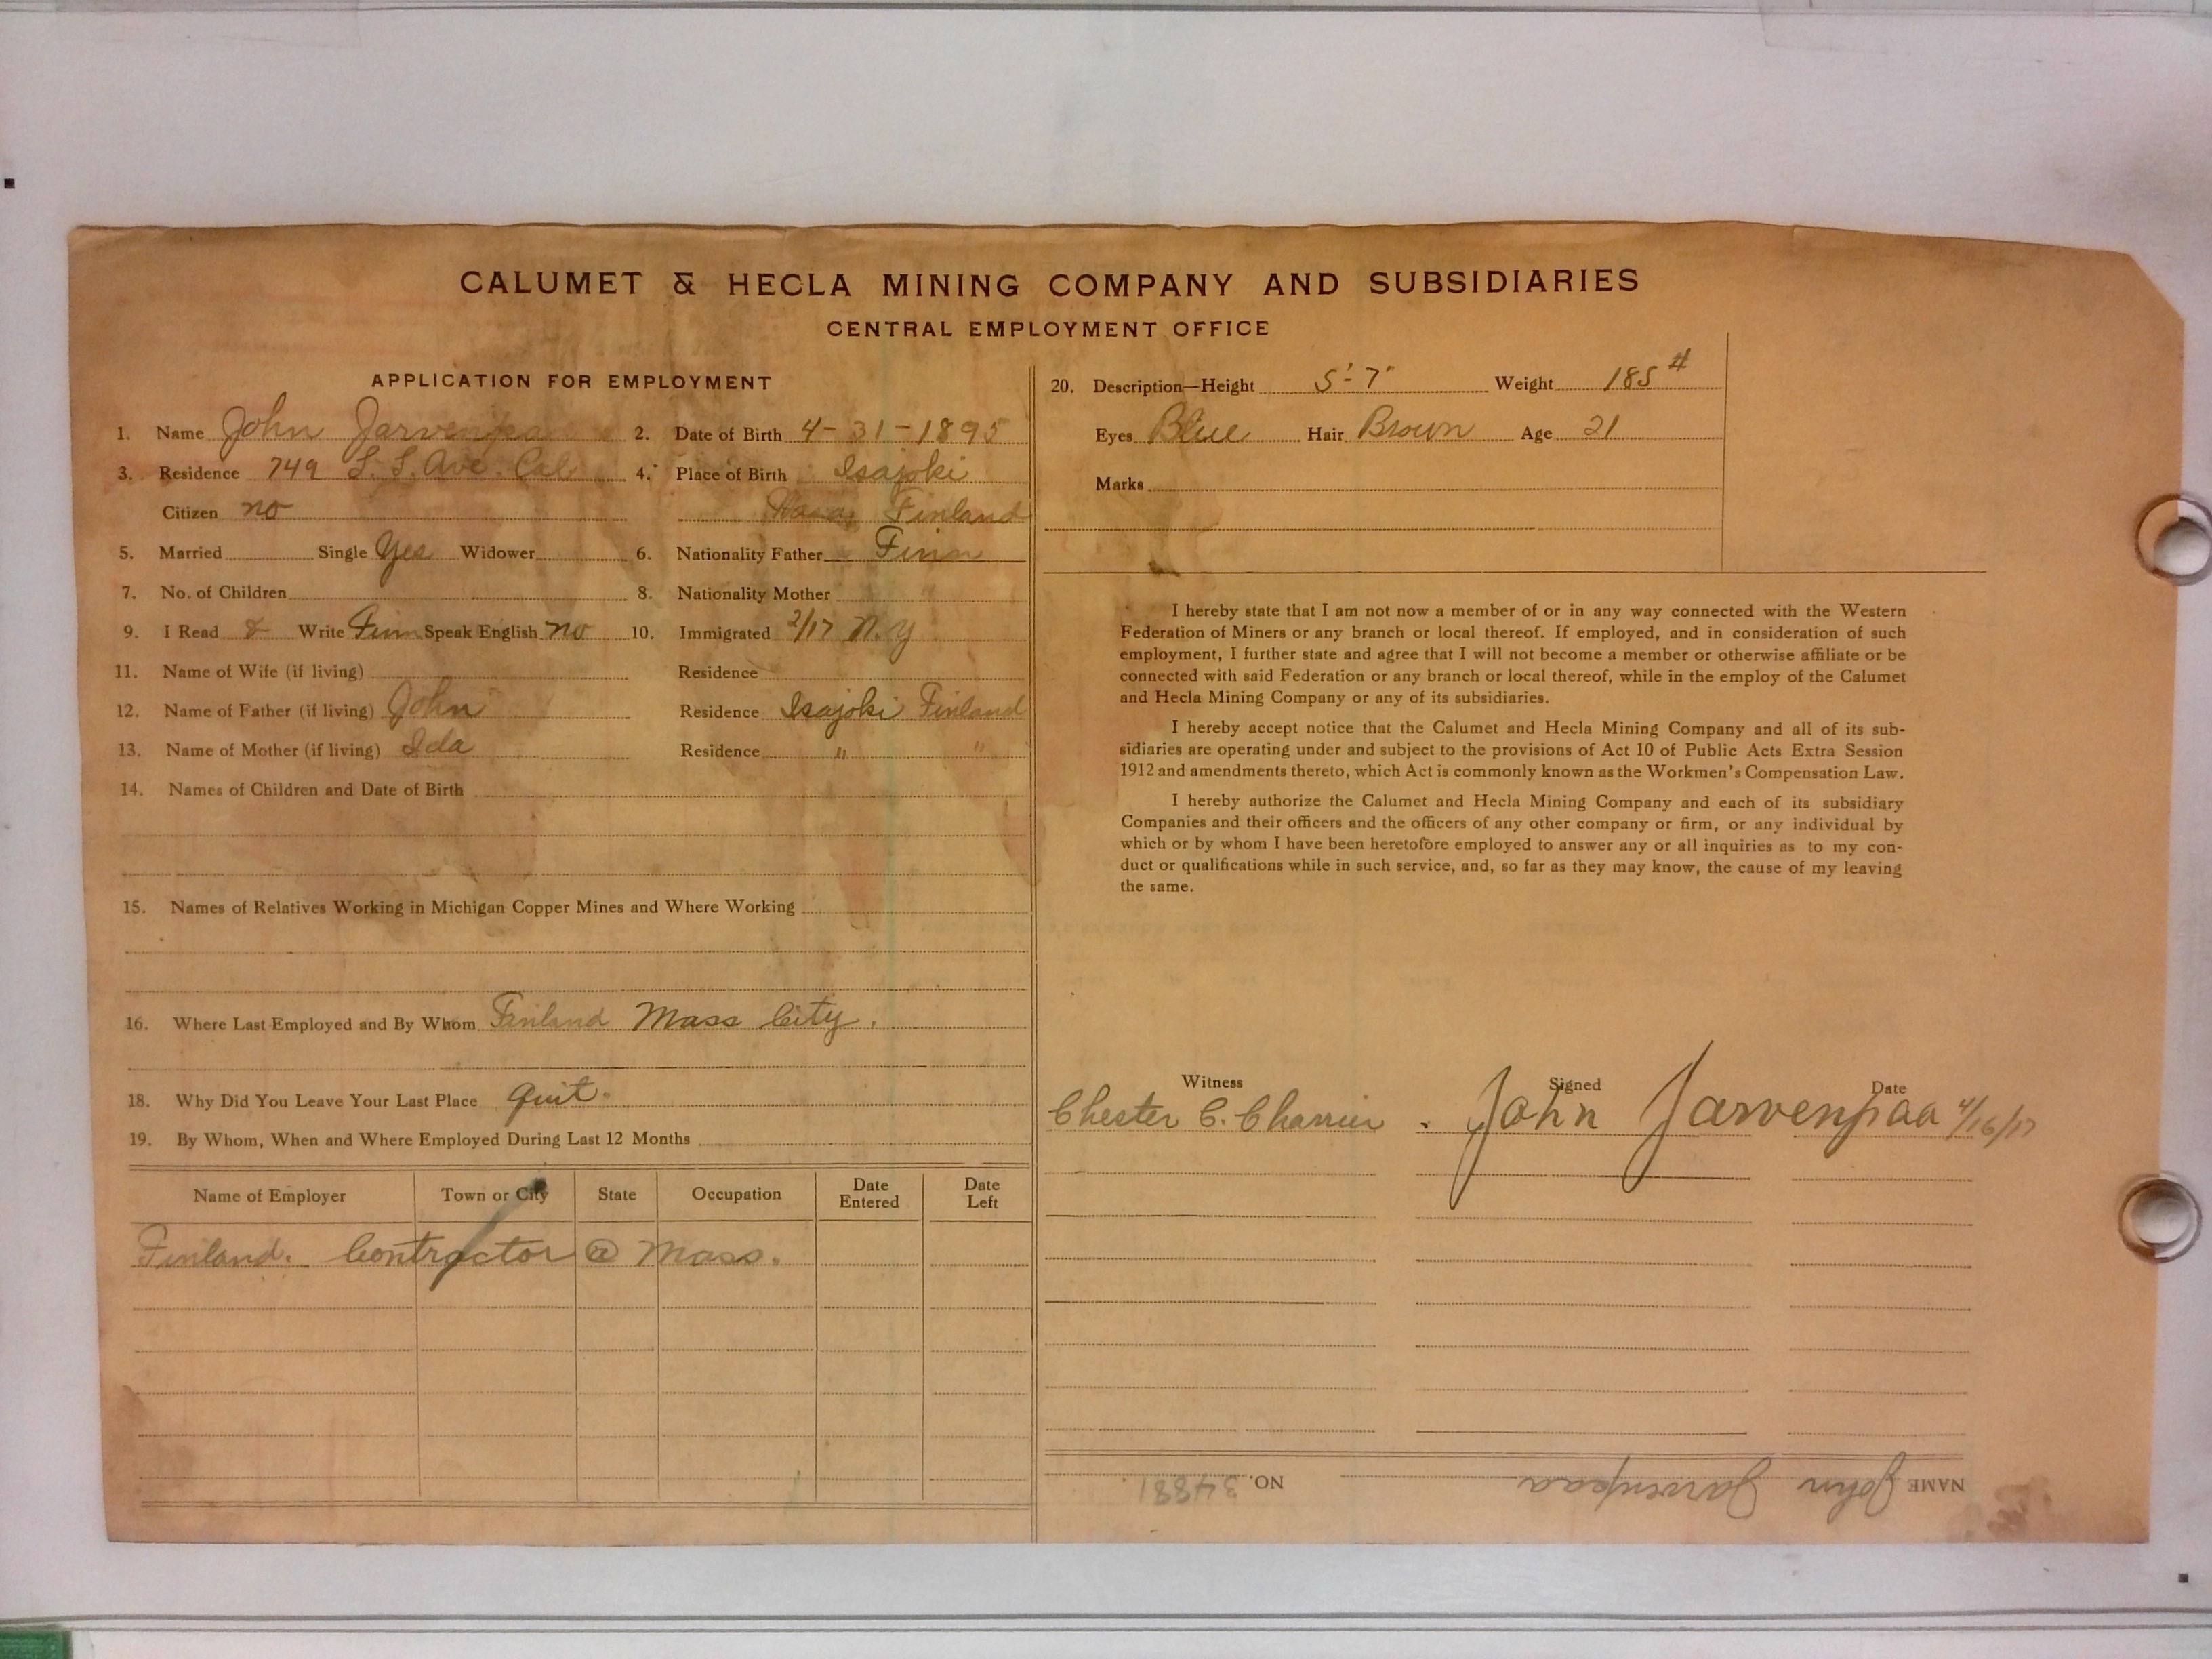 CALUMET & HECLA MINING COMPANY AND SUBSIDIARIES
CENTRAL EMPLOYMENT OFFICE
APPLICATION FOR EMPLOYMENT
1. Name John Jarvenpaa 2. Date of Birth 4-31-1895
3. Residence 749 L. L. Ave. Cal 4. Place of Birth Isajoki
Citizen no Finland
5. Married Single Yes Widower 6. Nationality Father Finn
7. No. of Children 8. Nationality Mother "
9. I Read & Write Finn Speak English no 10. Immigrated 2/17 N.Y
11. Name of Wife (if living) Residence
12. Name of Father (if living) John Residence Isajoki Finland
13. Name of Mother (if living) Ida Residence " "
14. Names of Children and Date of Birth
15. Names of Relatives Working in Michigan Copper Mines and Where Working
16. Where Last Employed and By Whom Finland Mass City.
18. Why Did You Leave Your Last Place quit.
19. By Whom, When and Where Employed During Last 12 Months
Name of Employer Town or City State Occupation Date Entered Date Left
Finland. Contractor @ Mass.
20. Description—Height 5'-7" Weight 185 #
Eyes Blue Hair Brown Age 21
Marks
I hereby state that I am not now a member of or in any way connected with the Western
Federation of Miners or any branch or local thereof. If employed, and in consideration of such
employment, I further state and agree that I will not become a member or otherwise affiliate or be
connected with said Federation or any branch or local thereof, while in the employ of the Calumet
and Hecla Mining Company or any of its subsidiaries.
I hereby accept notice that the Calumet and Hecla Mining Company and all of its sub-
sidiaries are operating under and subject to the provisions of Act 10 of Public Acts Extra Session
1912 and amendments thereto, which Act is commonly known as the Workmen's Compensation Law.
I hereby authorize the Calumet and Hecla Mining Company and each of its subsidiary
Companies and their officers and the officers of any other company or firm, or any individual by
which or by whom I have been heretofore employed to answer any or all inquiries as to my con-
duct or qualifications while in such service, and, so far as they may know, the cause of my leaving
the same.
Witness Signed Date
Chester C. Charrier. John Jarvenpaa 4/16/17
NAME John Jarvenpaa NO. 34881